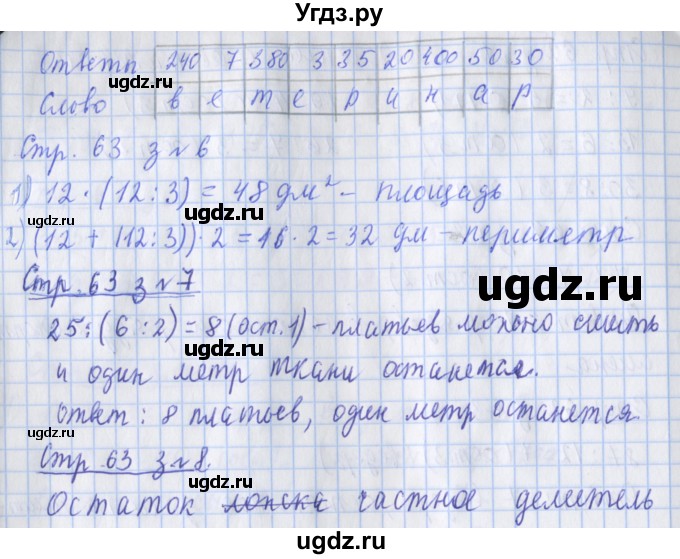 Угдз.ру
Ответы 240 7 380 3 35 20 400 50 30
Слово в е т е р и н а р
Стр. 63 з №6
1) 12 · (12 : 3) = 48 дм² – площадь
2) (12 + (12 : 3)) · 2 = 16 · 2 = 32 дм – периметр
Стр. 63 з №7
25 : (6 : 2) = 8 (ост. 1) – платьев можно сшить
и один метр ткани останется.
Ответ: 8 платьев, один метр останется
Стр. 63 з №8.
Остаток частное делитель
ugdz.ru
ugdz.ru
ugdz.ru
ugdz.ru
ugdz.ru
ugdz.ru
ugdz.ru
ugdz.ru
ugdz.ru
ugdz.ru
ugdz.ru
ugdz.ru